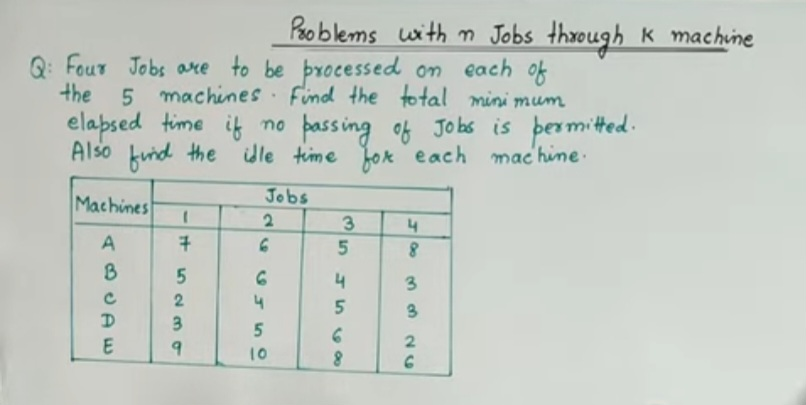 Problems with n Jobs through K machine
Q: Four Jobs are to be processed on each of
the 5 machines. Find the total minimum
elapsed time if no passing of Jobs is permitted.
Also find the idle time for each machine.
Machines Jobs
1 2 3 4
A 7 6 5 8
B 5 6 4 3
C 2 4 5 3
D 3 5 6 2
E 9 10 8 6